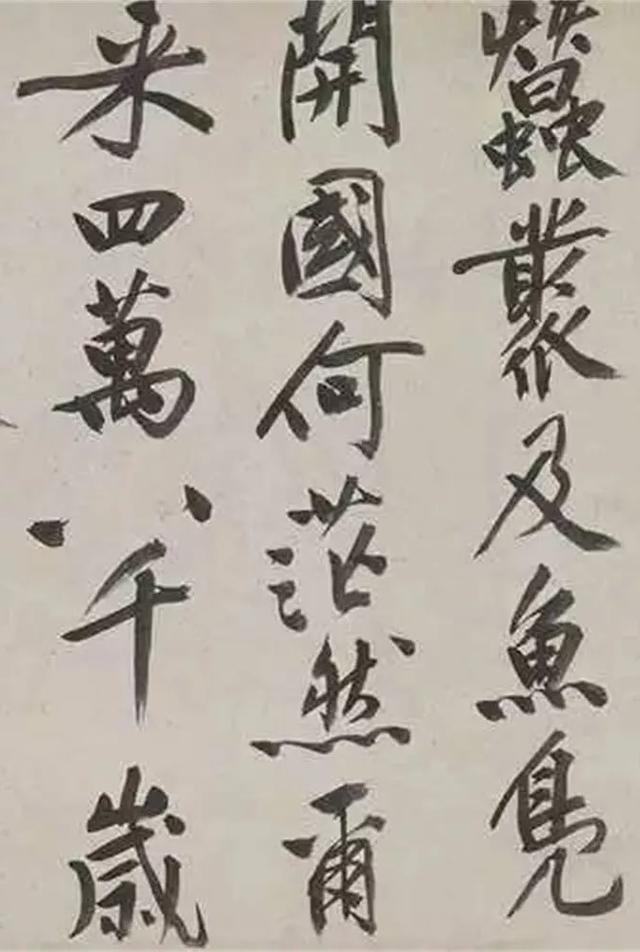 蠶叢及魚鳧
開國何茫然爾
来四萬八千歲